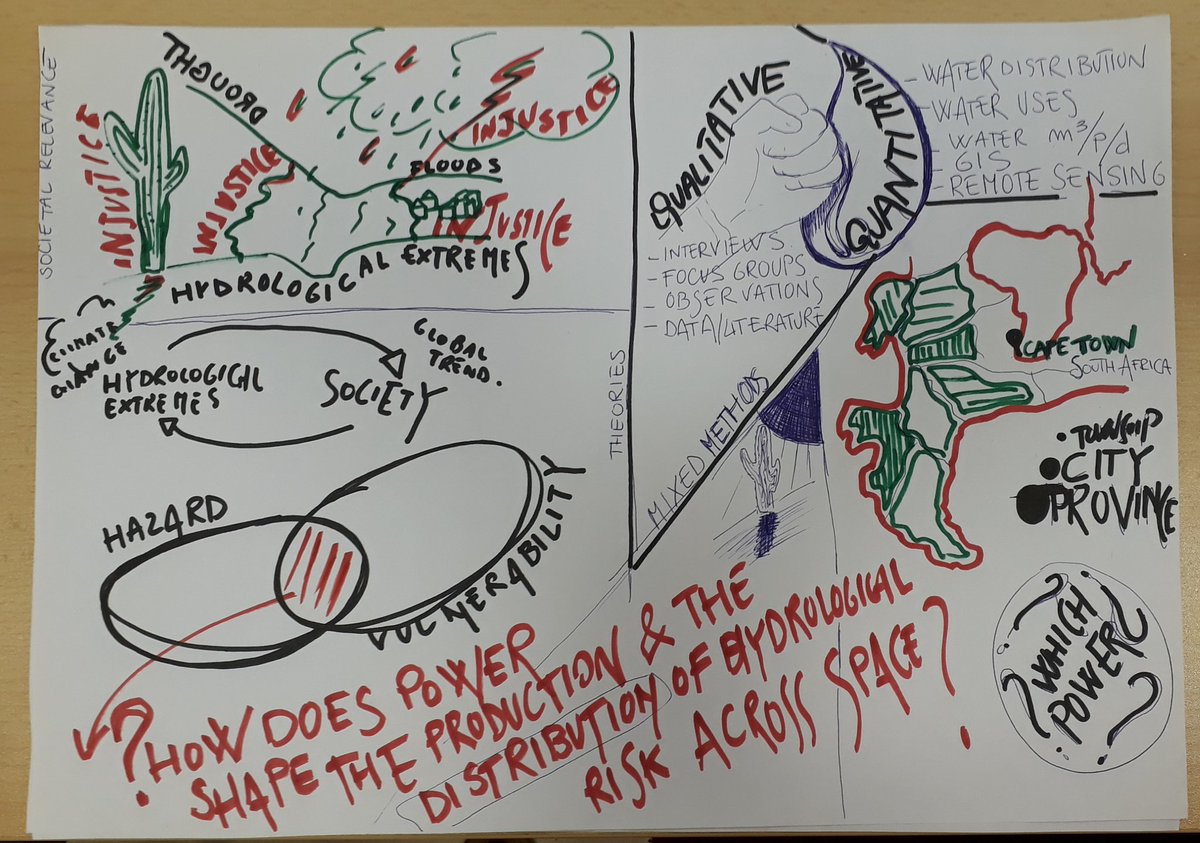 SOCIETAL RELEVANCE
DROUGHT
INJUSTICE
INJUSTICE
INJUSTICE
FLOODS
INJUSTICE
HYDROLOGICAL EXTREMES
CLIMATE
CHANGE
HYDROLOGICAL
EXTREMES
GLOBAL
TREND.
SOCIETY
HAZARD
VULNERABILITY
THEORIES
QUALITATIVE
- INTERVIEWS
- FOCUS GROUPS
- OBSERVATIONS
- DATA/LITERATURE
QUANTITATIVE
- WATER DISTRIBUTION
- WATER USES
- WATER m³/p/d
- GIS
- REMOTE SENSING
MIXED METHODS
CAPE TOWN
SOUTH AFRICA
• TOWNSHIP
• CITY
• PROVINCE
? WHICH
POWER ?
? HOW DOES POWER
SHAPE THE PRODUCTION & THE
DISTRIBUTION OF HYDROLOGICAL
RISK ACROSS SPACE ?